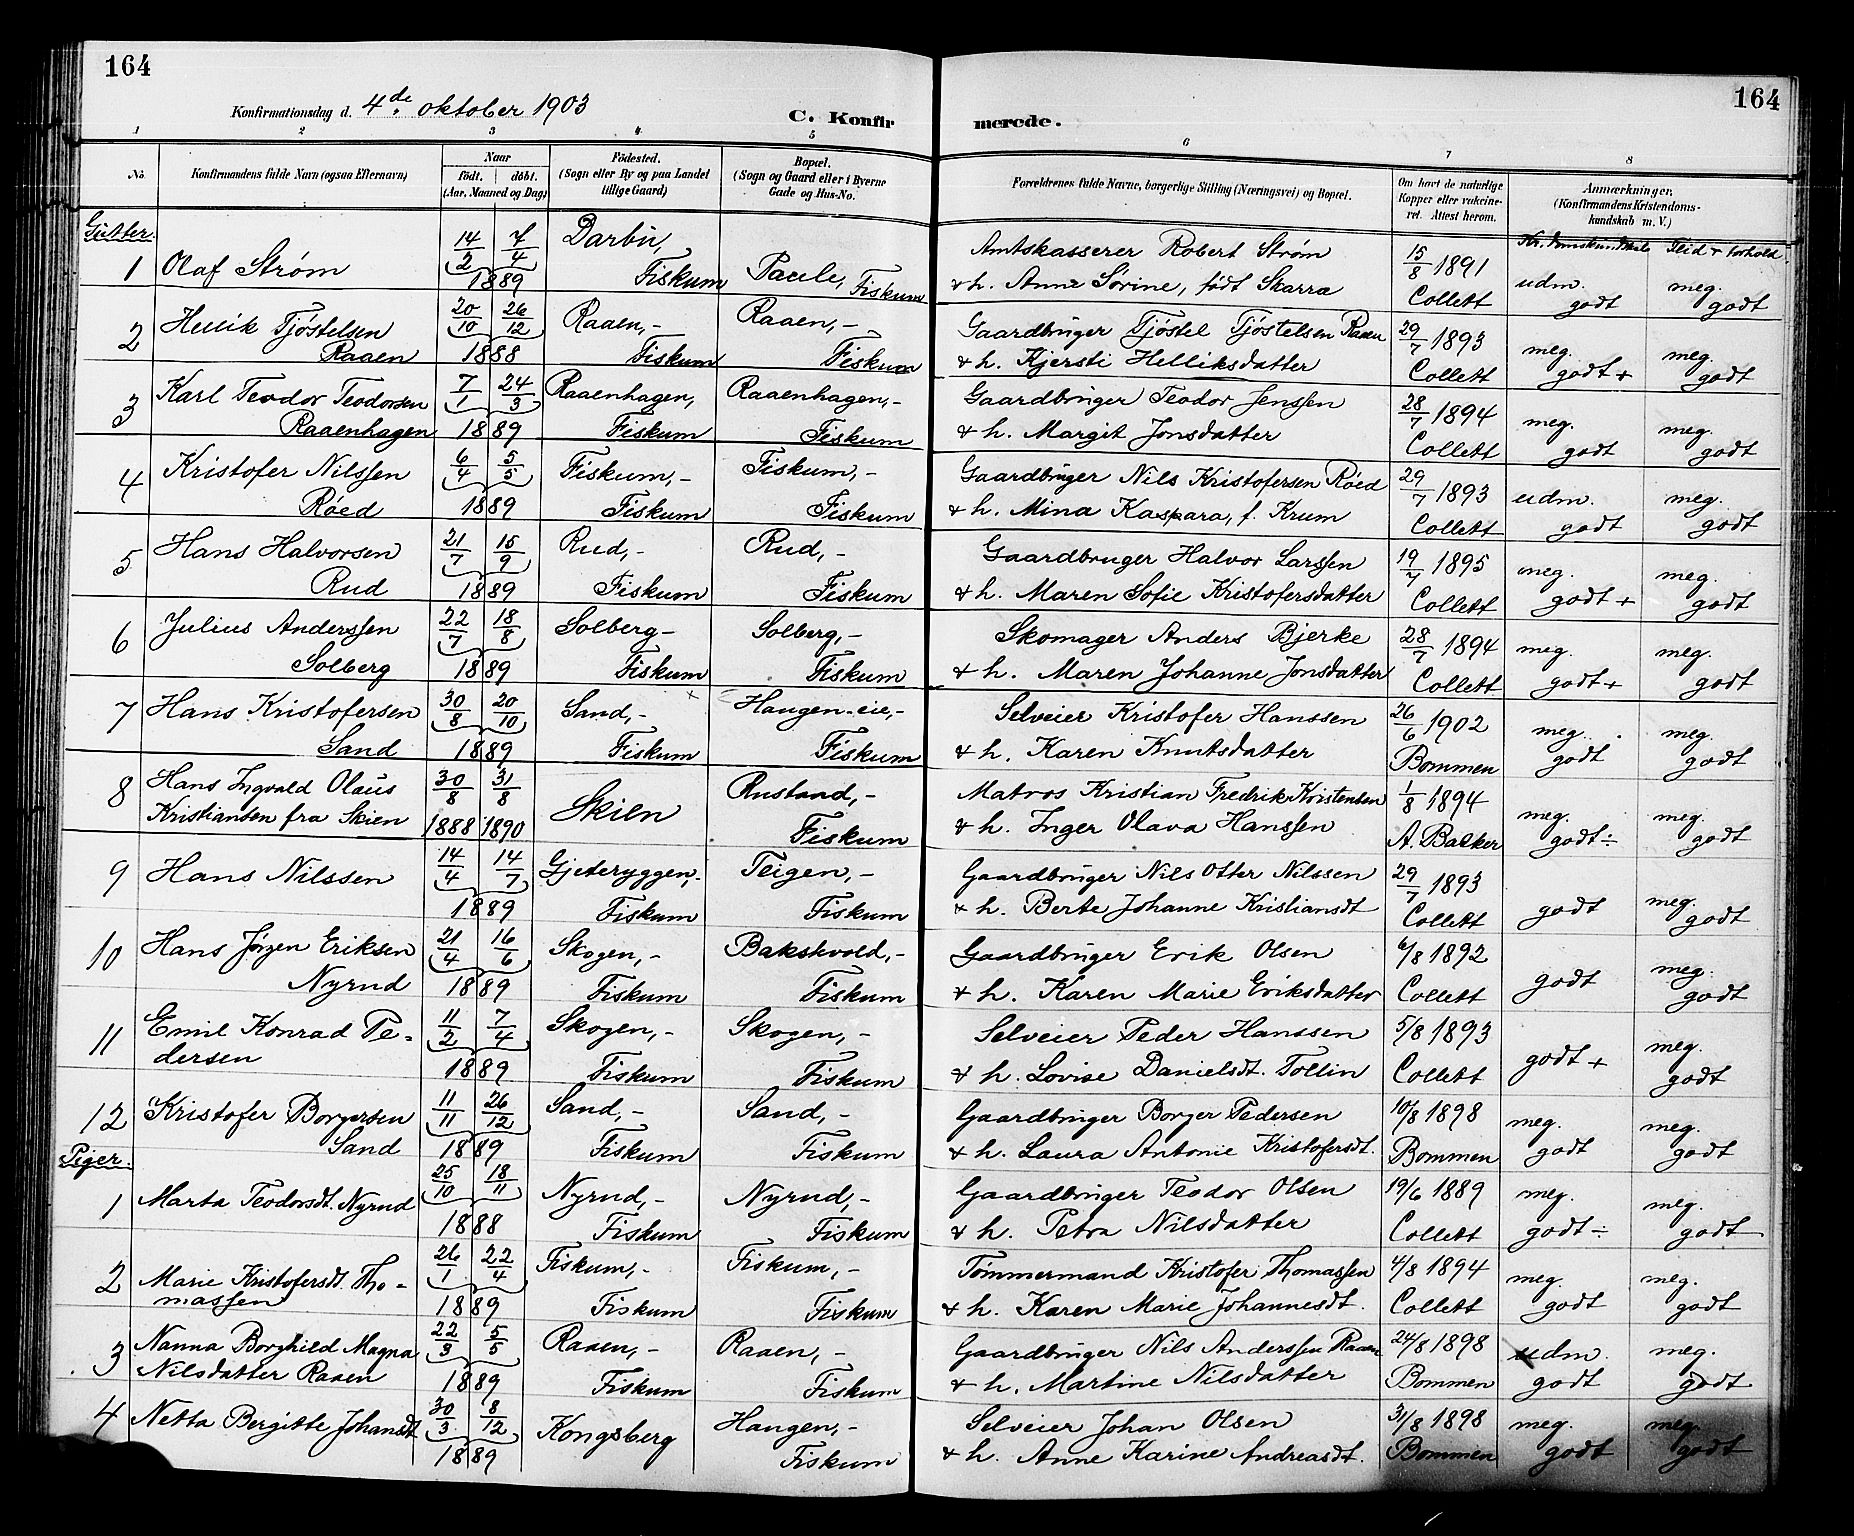 164
164
Konfirmationsdag d. 4de oktober 1903
C. Konfir merede.
1 2 3 4 5 6 7 8
No. Konfirmandens fulde Navn (ogsaa Efternavn) Naar født. døbt. (Aar, Maaned og Dag) Födested. (Sogn eller By og paa Landet tillige Gaard) Bopæl. (Sogn og Gaard eller i Byerne Gade og Hus-No. Forældrenes fulde Navne, borgerlige Stilling (Næringsvei) og Bopæl. Om havt de naturlige Kopper eller vakcineret. Attest herom. Anmærkninger. (Konfirmandens Kristendomskundskab m. V.)
Gutter. Kr.domskundskab Flid + forhold.
1 Olaf Strøm 14/2 7/4 1889 Darbu, Fiskum Paule, Fiskum Amtskasserer Robert Strøm
+ h. Anne Sørine, født Skarra 15/8 1891 Collett udm. godt meg. godt
2 Hellik Tjøstelsen 20/10 26/12 Raaen,- Raaen,- Gaardbruger Tjøstel Tjøstelsen Raaen 29/7 1893 meg. meg.
Raaen 1888 Fiskum Fiskum + h. Kjersti Helliksdatter Collett godt + godt
3 Karl Teodor Teodorsen 7/1 24/3 Raaenhagen, Raaenhagen,- Gaardbruger Teodor Jenssen 28/7 1894 meg. meg.
Raaenhagen 1889 Fiskum Fiskum + h. Margit Jonsdatter Collett godt godt
4 Kristofer Nilssen 6/4 5/5 Fiskum,- Fiskum,- Gaardbruger Nils Kristofersen Røed 29/7 1893 udm. meg.
Røed 1889 Fiskum Fiskum + h. Mina Kaspara, f. Krum Collett godt godt
5 Hans Halvorsen 21/7 15/9 Rud,- Rud,- Gaardbruger Halvor Larssen 19/7 1895 meg. meg.
Rud 1889 Fiskum Fiskum + h. Maren Sofie Kristofersdatter Collett godt + godt
6 Julius Anderssen 22/7 18/8 Solberg- Solberg,- Skomager Anders Bjerke 28/7 1894 meg. meg.
Solberg 1889 Fiskum Fiskum + h. Maren Johanne Jonsdatter Collett godt + godt
7 Hans Kristofersen 30/8 20/10 Sand,- Haugen-eie,- Selveier Kristofer Hanssen 26/6 1902 meg. meg.
Sand 1889 Fiskum Fiskum + h. Karen Knutsdatter Bommen godt godt
8 Hans Ingvald Olaus 30/8 31/8 Skien Rustand,- Matros Kristian Fredrik Kristensen 1/8 1894 meg. meg.
Kristiansen fra Skien 1888 1890 Fiskum + h. Inger Olava Hanssen godt ÷ godt
9 Hans Nilssen 14/4 14/7 Gjeteryggen,- Teigen,- Gaardbruger Nils Otter Nilssen 29/7 1893 godt meg.
1889 Fiskum Fiskum + h. Berte Johanne Kristiansdt Collett godt
10 Hans Jørgen Eriksen 21/4 16/6 Skogen,- Bakstvold,- Gaardbruger Erik Olsen 6/8 1892 godt meg.
Nyrud 1889 Fiskum Fiskum + h. Karen Marie Eriksdatter Collett godt
11 Emil Konrad Pe- 11/2 7/4 Skogen,- Skogen,- Selveier Peder Hanssen 5/8 1893 godt + meg.
dersen 1889 Fiskum Fiskum + h. Lovise Danielsdt. Tollin Collett godt
12 Kristofer Borgersen 11/11 26/12 Sand,- Sand,- Gaardbruger Borger Pedersen 10/8 1898 meg. meg.
Sand 1889 Fiskum Fiskum + h. Laura Antonie Kristofersdt. Bommen godt godt
Piger.
1 Marta Teodorsdt. Nyrud 25/10 18/11 Nyrud,- Nyrud,- Gaardbruger Teodor Olsen 19/6 1889 meg. meg.
1888 Fiskum Fiskum + h. Petra Nilsdatter Collett godt ÷ godt
2 Marie Kristofersdt. Tho- 26/1 22/4 Fiskum,- Fiskum,- Tømmermand Kristofer Thomassen 4/8 1894 meg. meg.
massen 1889 Fiskum Fiskum + h. Karen Marie Johannesdt. Collett godt godt
3 Nanna Borghild Magna 22/3 5/5 Raaen,- Raaen,- Gaardbruger Nils Anderssen Raaen 24/8 1898 udm. meg.
Nilsdatter Raaen 1889 Fiskum Fiskum + h. Martine Nilsdatter Bommen godt godt
4 Netta Bergitte Johansdt 30/3 8/12 Kongsberg Haugen,- Selveier Johan Olsen 31/8 1898 meg. meg.
1889 Fiskum + h. Anne Karine Andreasdt. Bommen godt godt